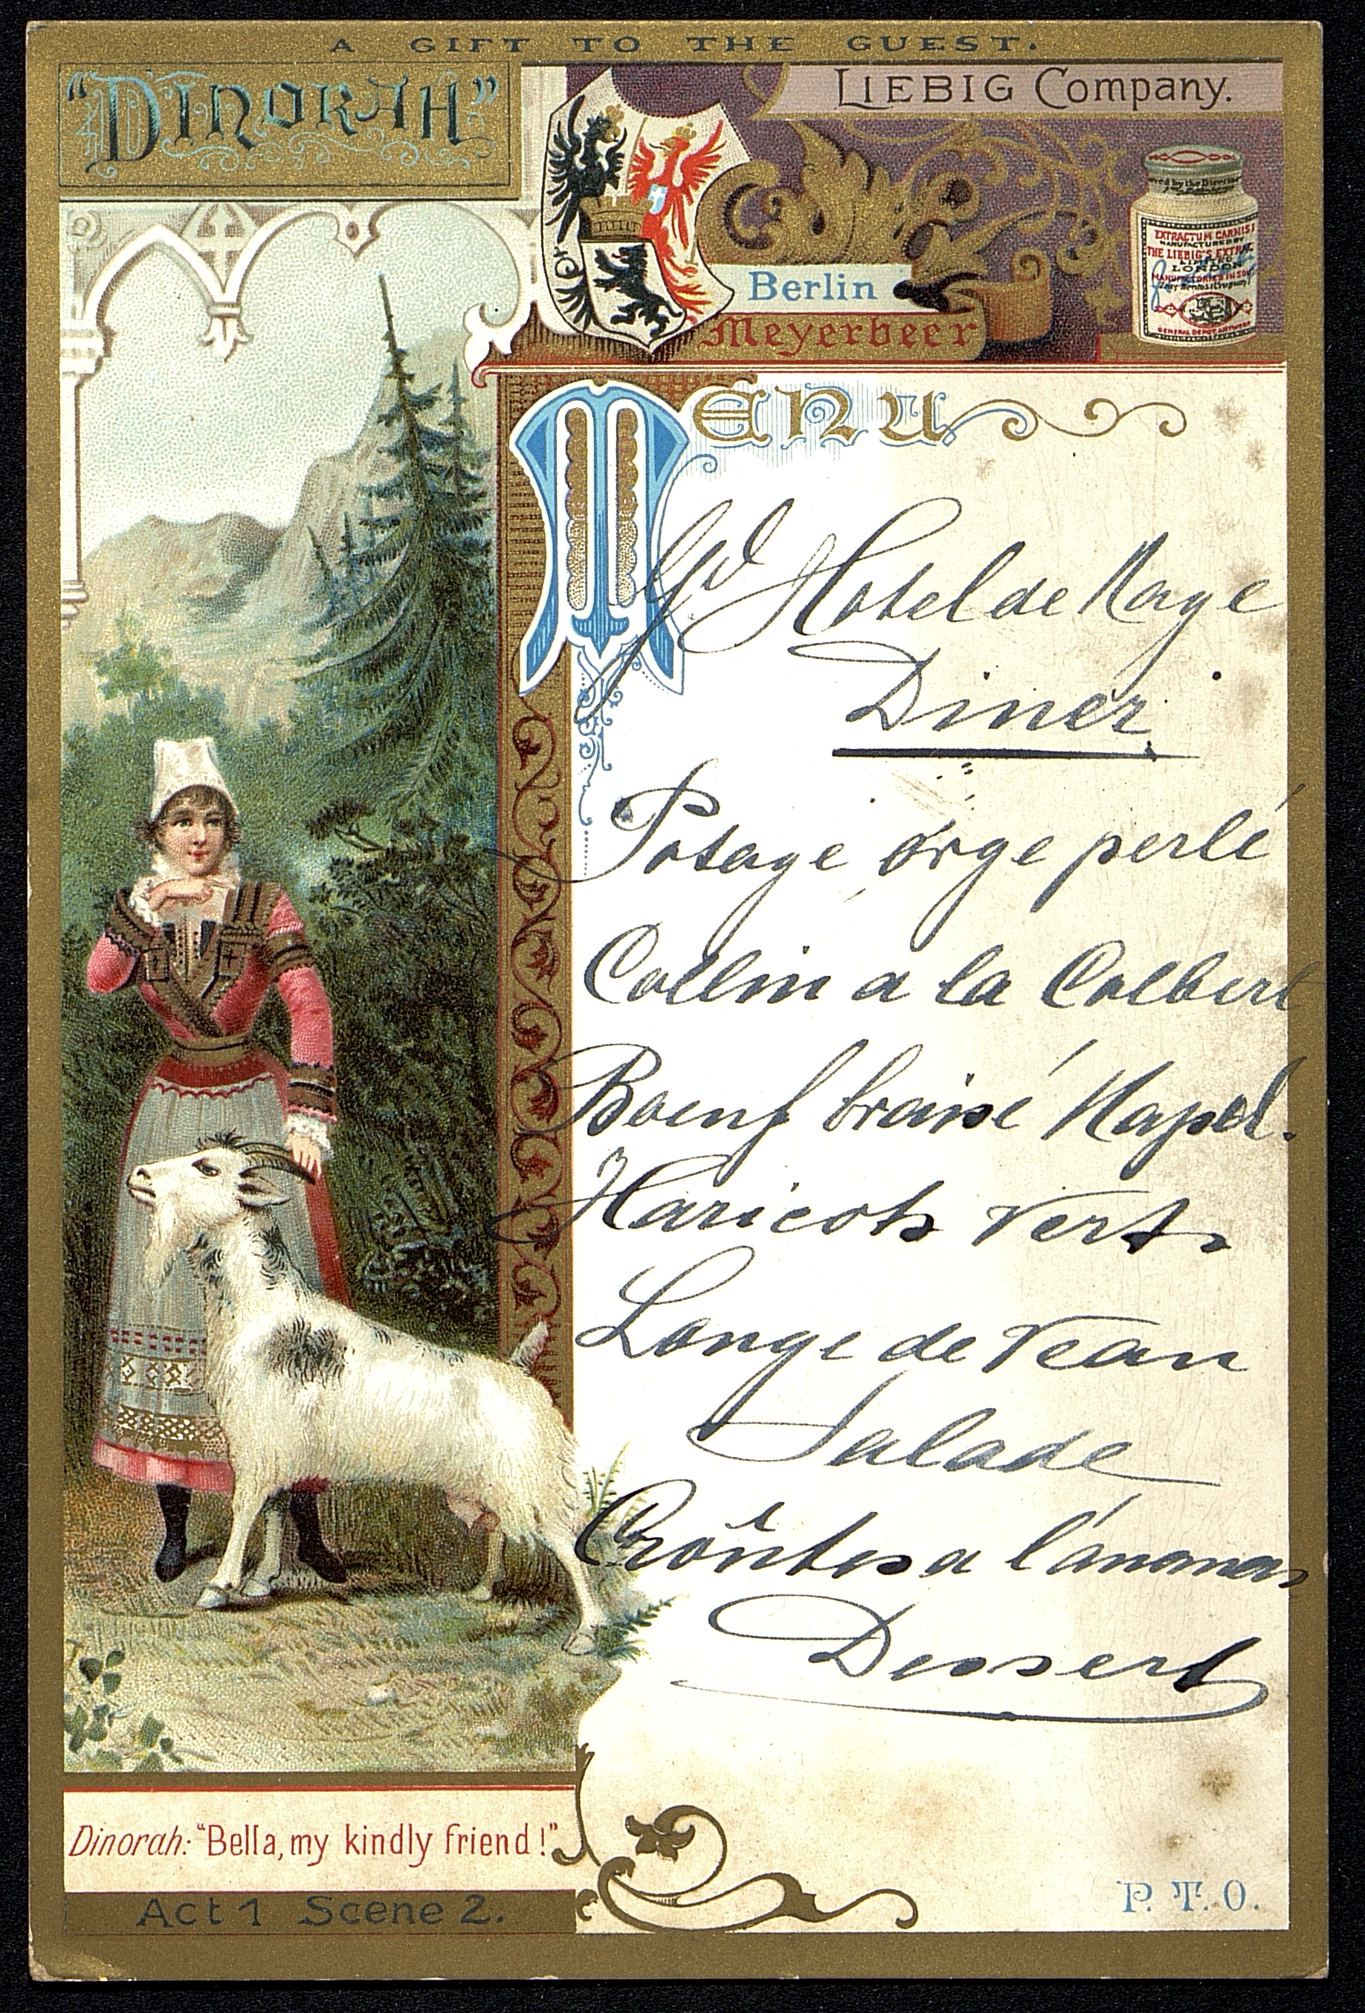 A GIFT TO THE GUEST.
"DINORAH"
LIEBIG Company.
Berlin
Meyerbeer
EXTRACTUM CARNIS
MANUFACTURED BY
THE LIEBIG'S EXTRAC
LIMITED
LONDON
GENERAL DEPOT ANTWERP
MENU
Gd Hotel de Naye
Diner
Potage orge perlé
Collin a la Colbert
Boeuf braisé Napol.
Haricots verts
Longe de veau
Salade
Croûtes a l'ananas
Dessert
Dinorah: "Bella, my kindly friend!"
Act 1 Scene 2.
P. T. O.